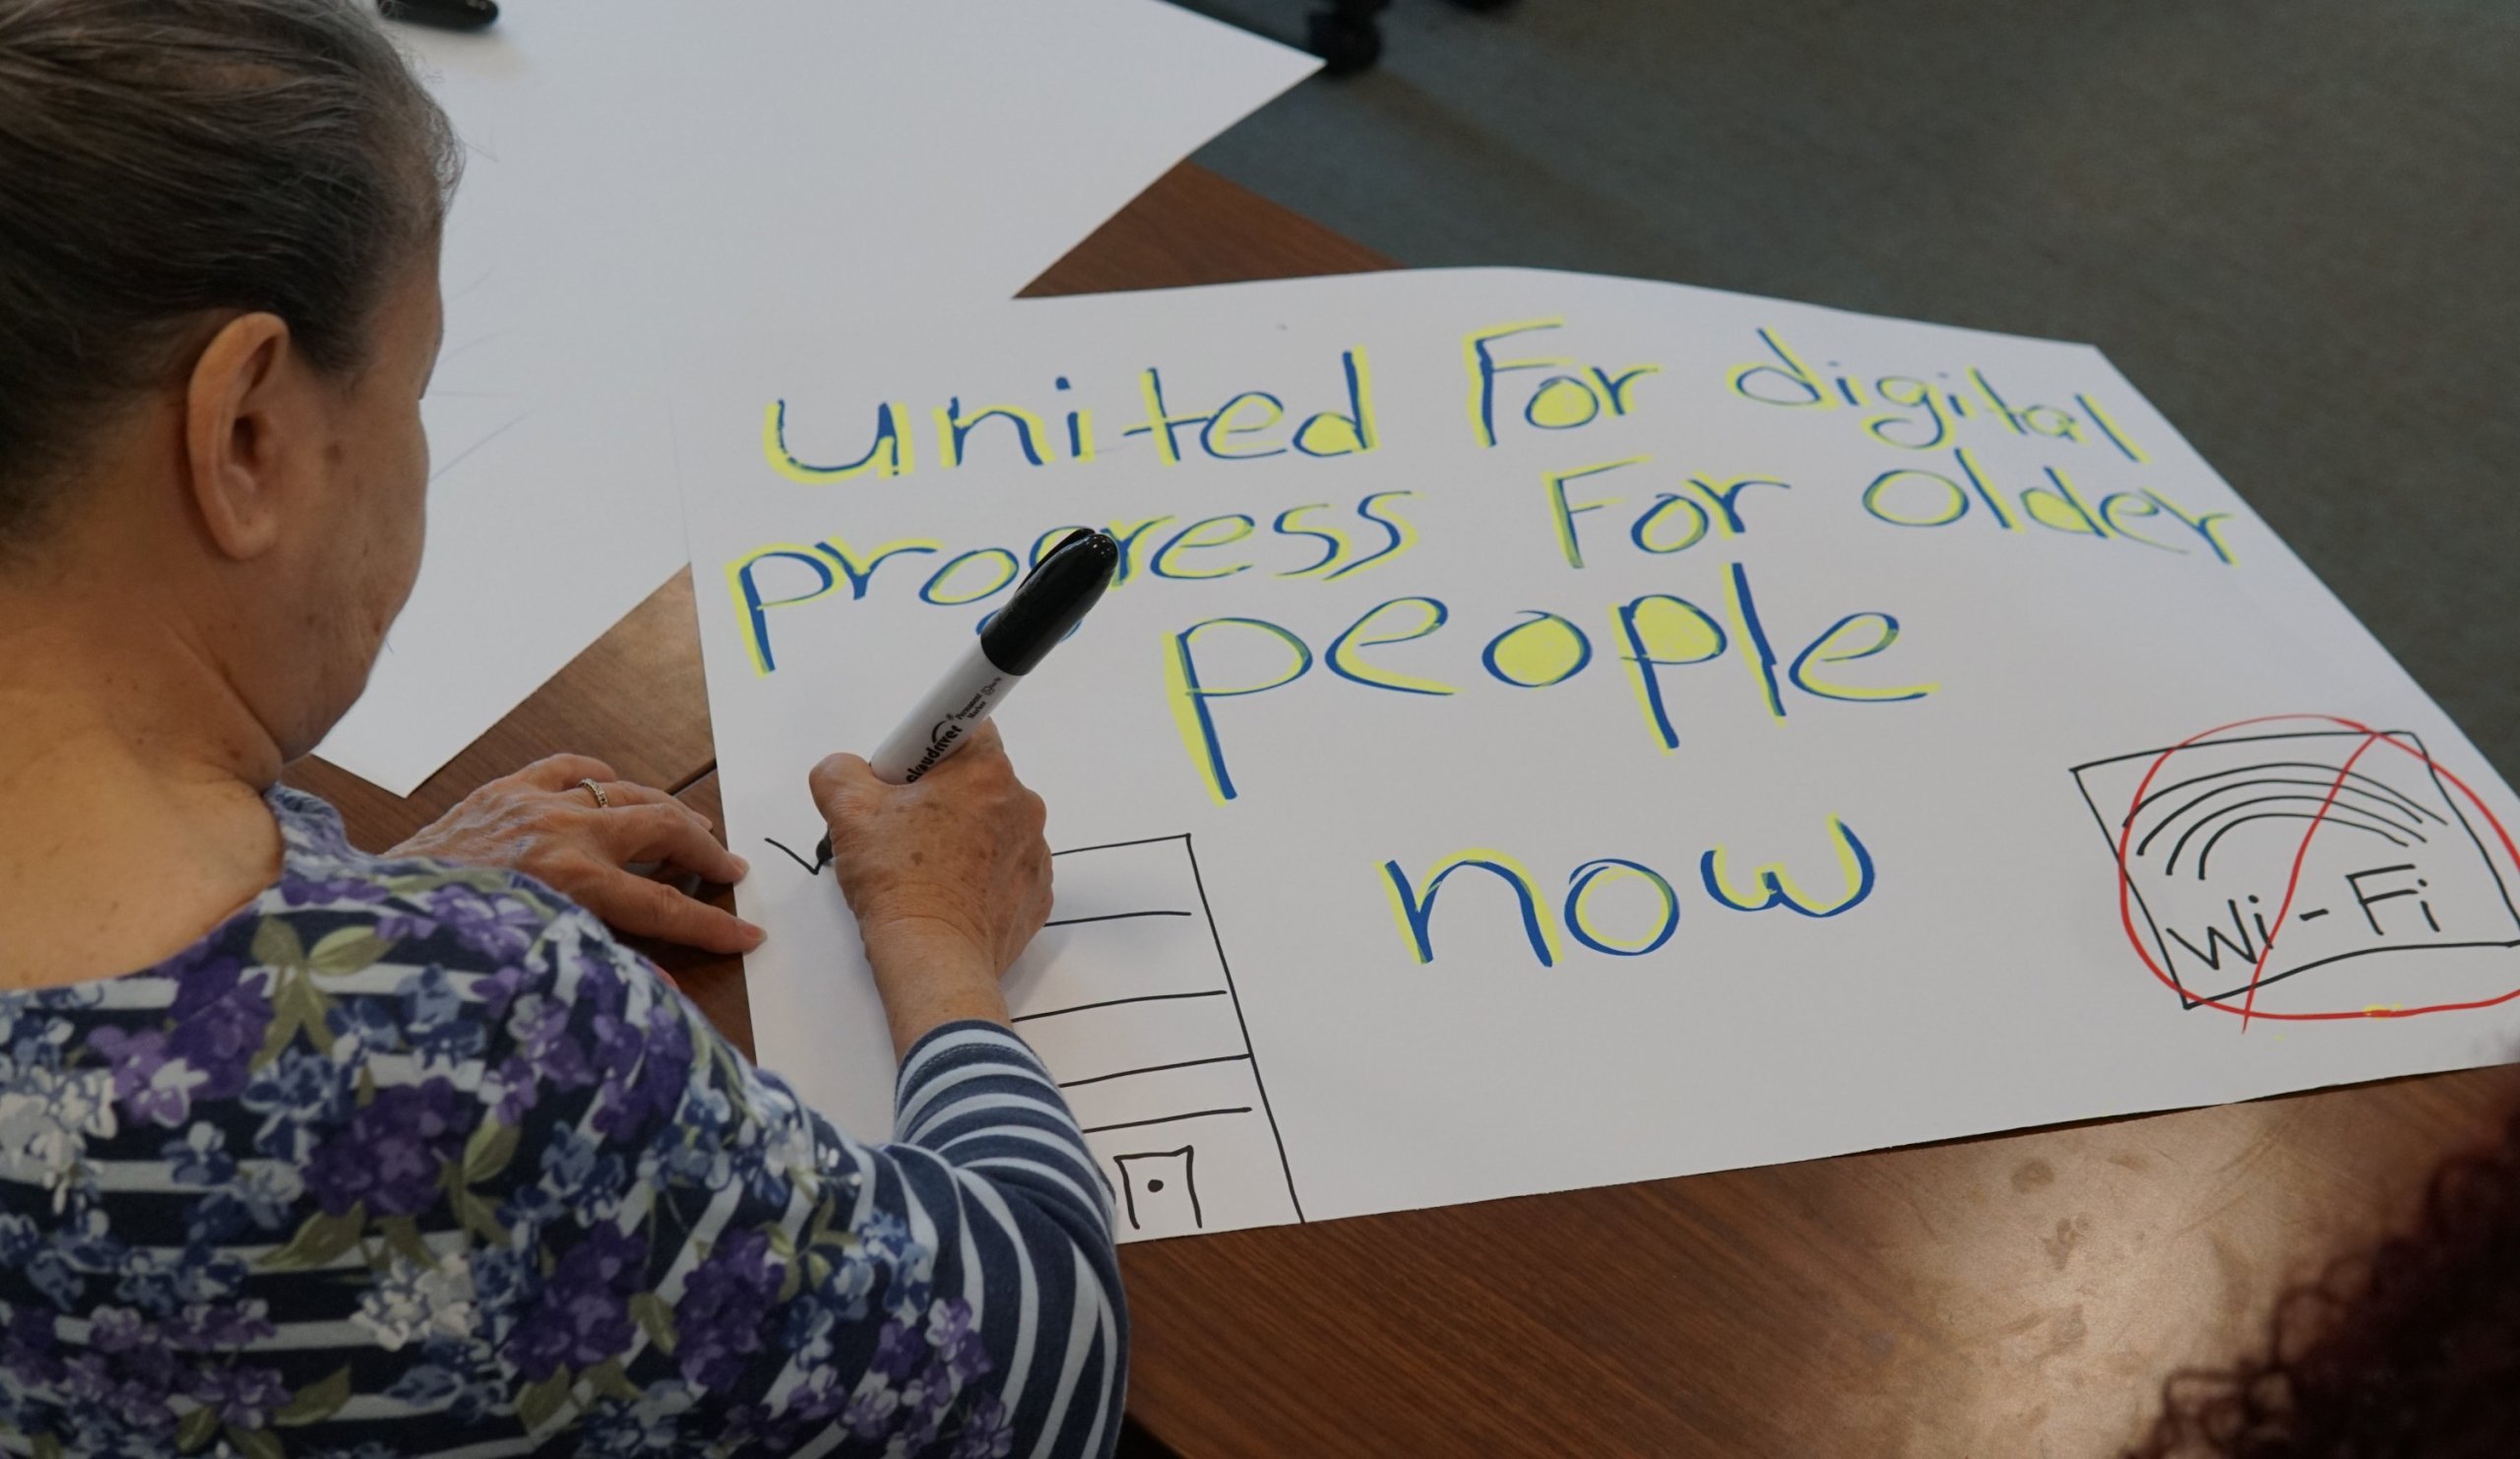 united For digital
progress For older
people
now
Wi-Fi
Permanent
Marker